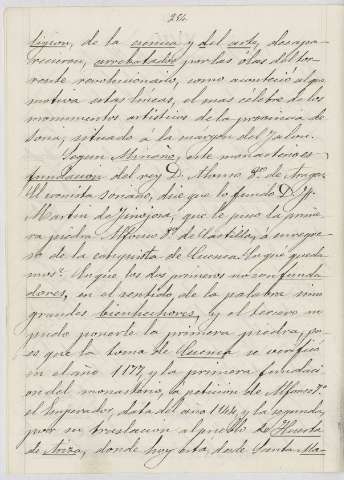 284
ligion, de la crónica y del arte, desapa-
recieron, arrebatados por las olas del to-
rrente revolucionario, como aconteció al que
motiva estas líneas, el mas célebre de los
monumentos artísticos de la provincia de
Soria, situado á la margen del Jalon.
Segun Miñano, este monasterio es
fundacion del rey D. Alonso 2º de Aragon
El cronista soriano, dice que lo fundó D.
Martin de Finojosa, que le puso la prime-
ra piedra Alfonso 8º de Castilla, á su regre-
so de la conquista de Cuenca ¿á qué queda-
mos? Á que los dos primeros no son funda-
dores, en el sentido de la palabra sino
grandes bienhechores, y el tercero no
pudo ponerle la primera piedra, pu-
es que la toma de Cuenca se verificó
en el año 1177 y la primera fundaci-
on del monasterio, á peticion de Alfonso 7º
el Emperador, data del año 1144 y la segunda,
por su traslacion al pueblo de Huerta
de Ariza, donde hoy está, desde Santa Ma-